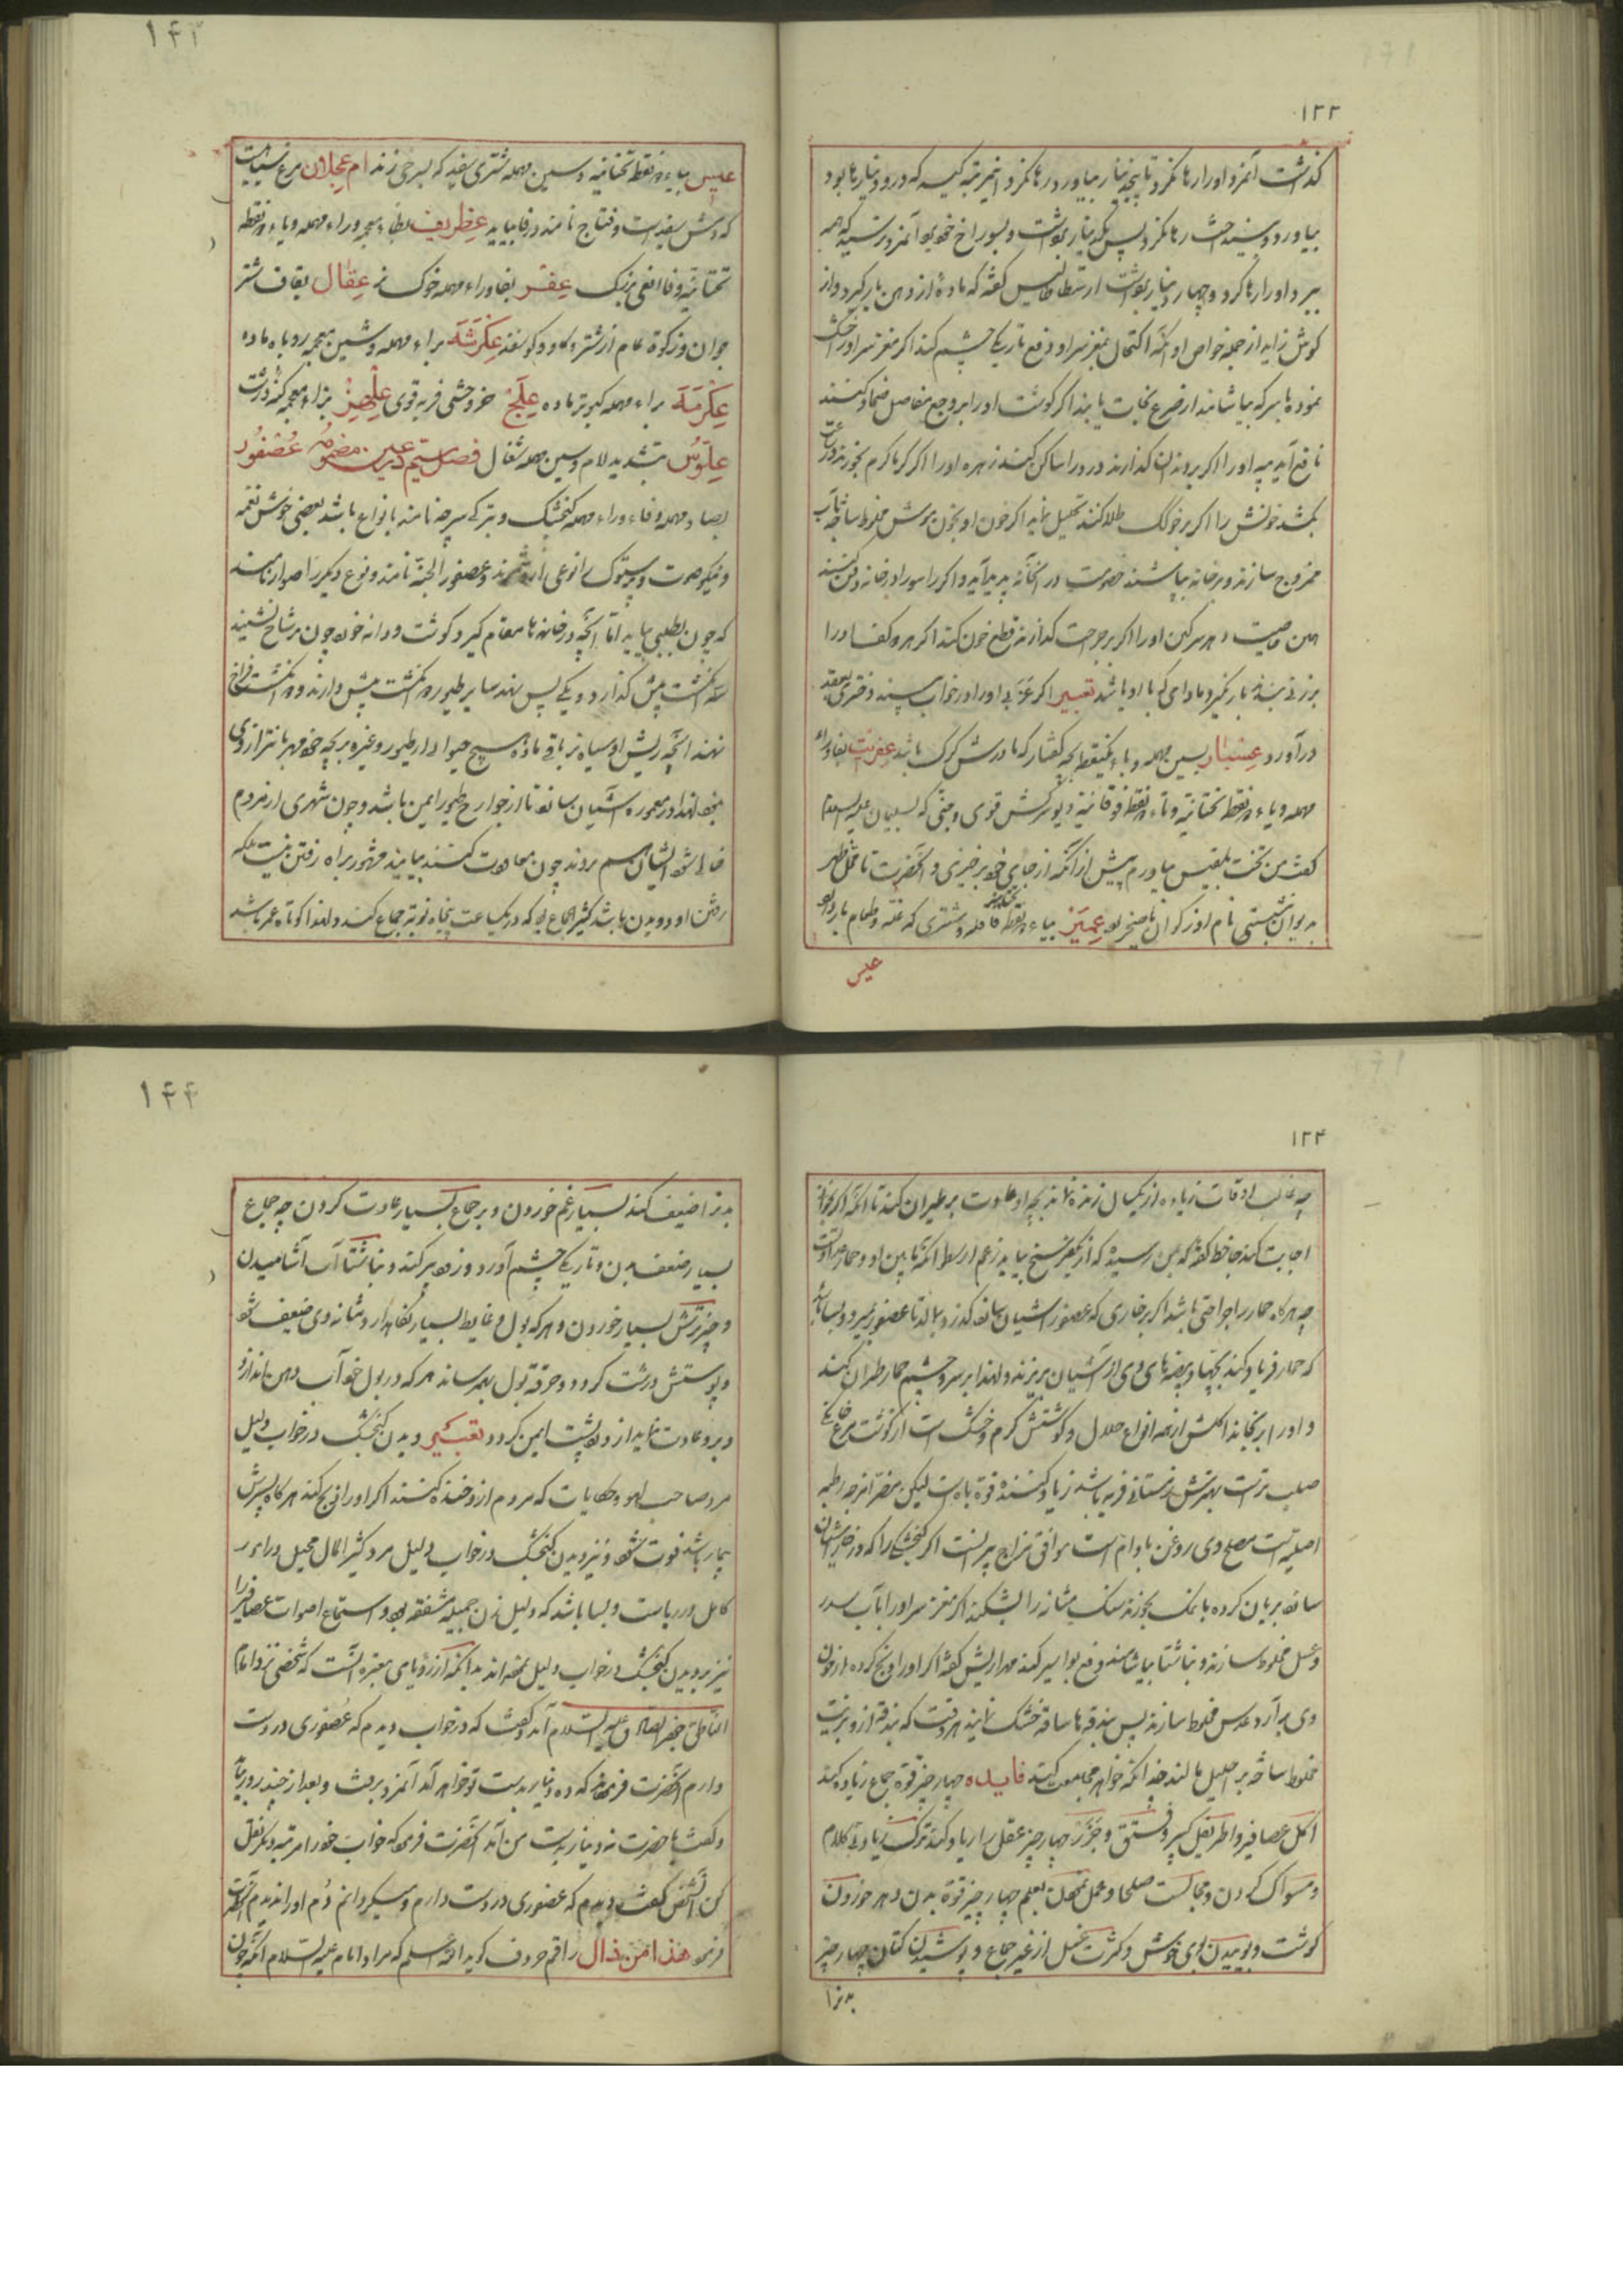 ۱۲۲
گذاشت آنمرد او را رها نکرد تا پنجه دینار بیاورد رها نکرد
بیاورد و رها نکرد پس یکدینار
ببرد او را رها کرد و چهار دینار ارسطاطالیس گفته که ماده از دهن بار گیرد و از
گوش زاید از جمله خواص او آنکه اکتحال بمغز سر او دفع تاریکی چشم کند اگر مغز سر او را خشک
نموده با سرکه بیاشامند از صرع نجات یابند اگر گوشت او را بر وجع مفاصل ضماد کنند
نافع آید پیه او را اگر بر دندان گذارند درد را ساکن کند زهره او را اگر گرماگرم بخورند در ساعت
بکشد خونش را اگر بر طلا کنند تحلیل نماید اگر خون او بخون موش مخلوط ساخته بآب
ممزوج سازند و بر خانه بپاشند خصومت در آنخانه پدید آید و اگر در خانه دفن کنند
همین خاصیت دهد سرکین او را اگر بر جراحت گذارند قطع خون کند اگر هر دو او را
بر زنی بندند بار نگیرد مادامی که با او باشد تعبیر اگر عزبی او را در خواب بیند دختری بعقد
درآورد عسبار بسین مهمله و باء یکنقطه بچه کفتار که مادرش گرک باشد عفریت بفاء و راء
مهمله و یاء دو نقطه تحتانیة و تاء دو نقطه فوقانیة دیو سرکش قوی و جنی که بسلیمان علیه السلام
گفت من تخت بلقیس بیاورم پیش از آنکه از جای خود برخیزی و آنحضرت تا محل ظهر
بدیوان نشستی نام او ذکوان یا صخر بود عمیز بیاء دو نقطه قافله و شتری که غله و طعام بار دارد
عیس
۱۴۳
عیس بیاء دو نقطه تحتانیه و سین مهمله شتری سفید که بسرخی زند ام عجلان مرغ سیاهیست
که دمش سفید است و فتاح نامند در فا بیاید عظریف بظاء معجمه و راء مهمله و یاء دو نقطه
تحتانیة و فا افعی بزرک عفر بفا و راء مهمله خوک نر عقال بقاف شتر
جوان و زکوة عام از شتر و گاو و گوسفند عکرشة براء مهمله و شین معجمه روباه ماده
عکرمة براء مهمله کبوتر ماده علج خر وحشی فربه قوی علهز بزاء معجمه کنه درشت
علوس بتشدید لام و سین مهمله شغال فصل سیم عین مضمومه عصفور
بصاد مهمله و فاء و راء مهمله گنجشک و بترکی سرچه نامند بانواع باشد بعضی خوش نغمه
و نیکو صوت و پرستوک را نوعی از او شمرند و عصفور الجنة نامند و نوع دیگر را صرار نامند
که چون بطلبی بیاید اما آنچه در خانها مقام گیرد گوشت و دانه خورد چون بر شاخ نشیند
سه انگشت پیش گذارد و یکی پس نهد سایر طیور دو انگشت پیش دارند و دو انگشت
نهند آنچه ریش او سیاه نر باقی ماده هیچ حیوان از طیور و غیره بر بچه خود مهربانتر از وی
نبود لهذا در معموره آشیان سازد تا از جوارح طیور ایمن باشد و چون شهری از مردم
خالی شود ایشان هم بروند چون معاودت کنند بیایند مشهور براه رفتن نیست بلکه
رفتن او دویدن باشد کثیر الجماع بود که در یکساعت پنجاه نوبة جماع کند و لهذا کوتاه عمر باشد
۱۲۴
چه غالب اوقات زیاده از یکسال زنده نماند بچه او عادت بر طیران کند تا آنکه اگر بخواند
اجابت کند جاحظ گفته که بمن رسیده که از یکفرسخ بیاید بزعم ارسطو آنکه مابین او و حمار عداوتست
چه هرگاه حمار را جراحتی باشد اگر بر خاری که عصفور آشیان ساخته گذرد بمالد تا عصفور بمیرد و بسا باشد
که حمار فریاد کند بچها و بیضهای وی از آشیان بریزند و لهذا بر سر و چشم حمار طیران کند
و او را برنجاند اکلش از همه انواع حلال و گوشتش گرم و خشک است از گوشت مرغ خانگی
صلب تر است بهترش زمستانی فربه باشد زیاد کننده قوة باه است لیکن مضر امزجه رطبه
اصلیه است مصلح وی روغن بادام است موافق مزاج پیرانست اگر گنجشکی را که در آشیان
ساخته بریان کرده با نمک بخورند سنک مثانه را بشکند اگر مغز سر او را با آب سدر
و عسل مخلوط سازند و ناشتا بیاشامند دفع بواسیر کند مهراریس گفته اگر او را ذبح کرده از خون
وی بر آرد عدس مخلوط سازند پس بندقها ساخته خشک نمایند هر وقت که بندقه از و بزیت
مخلوط ساخته بر احلیل مالند چندانکه خواهد مجامعت کند فایده چهار چیز قوة جماع زیاده کند
اکل عصافیر و اطریفل کبیر و فستق و جزر چهار چیز عقل را زیاد کند ترک زیادتی کلام
و مسواک کردن و مجالست صلحا و عمل نمودن بعلم چهار چیز قوة بدن دهد خوردن
گوشت و بوییدن بوی خوش و کثرت غسل از غیر جماع و پوشیدن کتان چهار چیز
بدنرا
۱۴۴
بدنرا ضعیف کند بسیار غم خوردن و بر جماع بسیار عادت کردن چه جماع
بسیار ضعف بدن و تاریکی چشم آورد و زود پیر کند و ناشتا آب آشامیدن
و چیز ترش بسیار خوردن و هر که بول و غایط بسیار نگاهدارد مثانه وی ضعیف شود
و پوستش درشت گردد و حرقة بول بهم رساند هر که در بول خود آب دهن اندازد
و برو عادت نماید از درد پشت ایمن گردد تعبیر دیدن گنجشک در خواب دلیل
مرد صاحب لهو و حکایات که مردم از و خنده کنند اگر او را ذبح کند هرگاه پسرش
بیمار باشد فوت شود و نیز دیدن گنجشک در خواب دلیل مرد کثیر المال محیل در امور
کامل در ریاست و بسا باشد که دلیل زن جمیله مشفقه بود و استماع اصوات عصافیر را
نیز بر دیدن گنجشک در خواب دلیل نموده اند بدانکه از رؤیای معتبره آنست که شخصی نزد امام
الناطق جعفر الصادق علیه السلام آمد و گفت که در خواب دیدم که عصفوری در دست
دارم آنحضرت فرمود که ده دینار بدست تو خواهد آمد آنمرد برفت و بعد از چند روز بیامد
و گفت یا حضرت نه دینار بدست من آمد آنحضرت فرمود که خواب خود را مرتبه دیگر نقل
کن آنشخص گفت دیدم که عصفوری در دست دارم و میگردانم دم او را ندیدم آنحضرت
فرمود هذا من ذال راقم حروف گوید الله اعلم که مراد امام علیه السلام آنکه چون